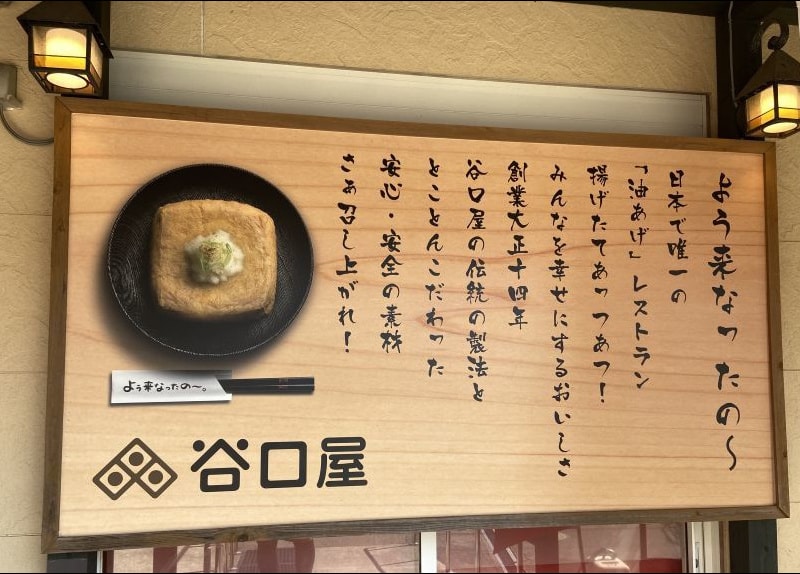 よう来なったの〜
日本で唯一の
「油あげ」レストラン
揚げたてあっつあつ!
みんなを幸せにするおいしさ
創業大正十四年
谷口屋の伝統の製法と
とことんこだわった
安心・安全の素材
さぁ召し上がれ!
よう来なったの〜。
谷口屋